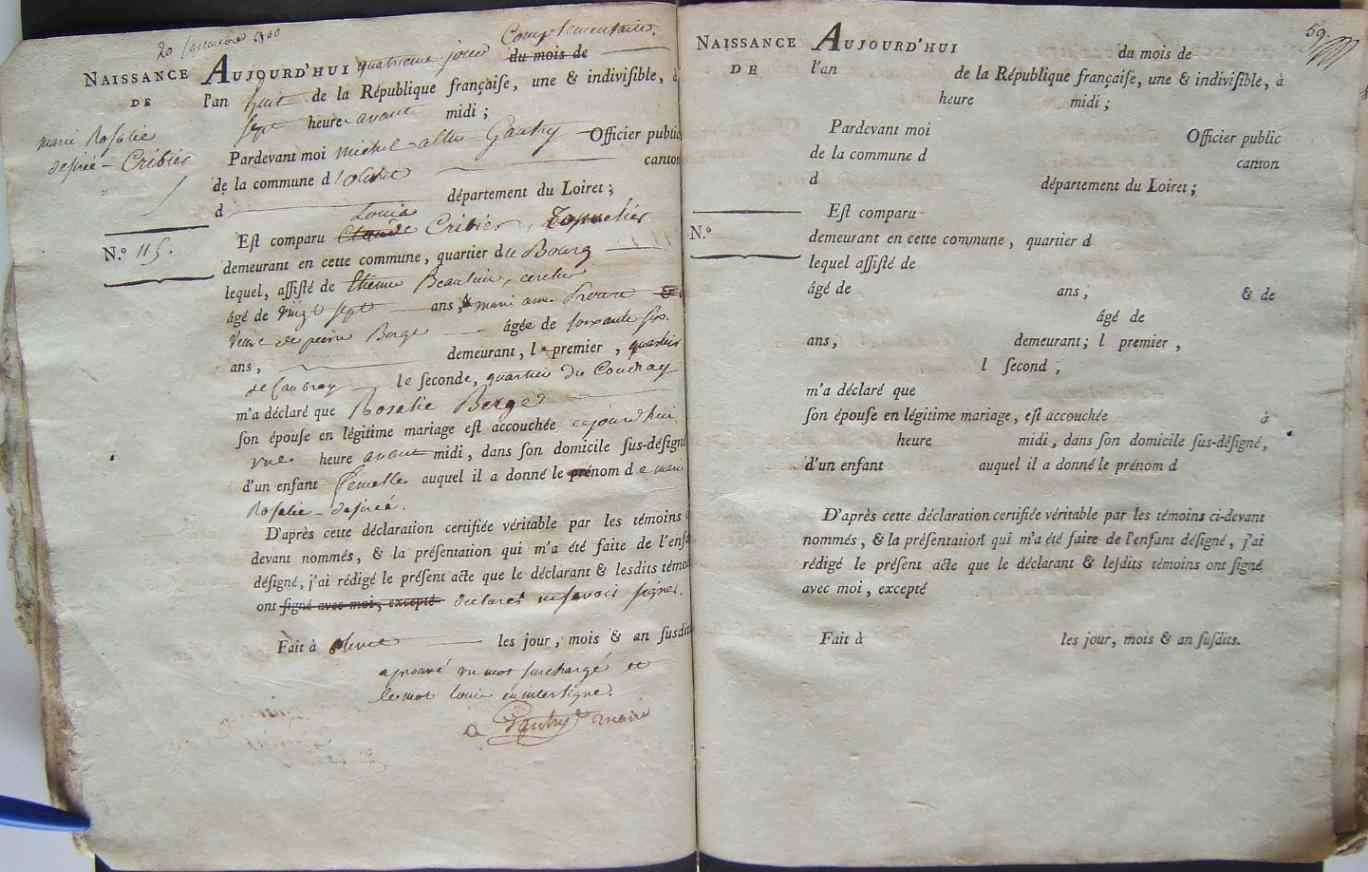 NAISSANCE
DE
marie Rosalie
desirée - Cribier
N.º 115.
Complementaire.
AUJOURD'HUI quatrieme jour du mois de
l'an huit de la République françaiſe, une & indiviſible, à
sept heure avant midi ;
Pardevant moi michel Gautry Officier public
de la commune d'olivet canton
d département du Loiret ;
Louis
Eſt comparu Claude Cribier, Tonnelier
demeurant en cette commune, quartier du Bourg
lequel, aſſiſté de Etienne cerclier
âgé de vingt sept ans, & marie anne &
veuve de pierre Berge âgée de soixante six
ans, demeurant, l premier, quartier
de le ſeconde, quartier du Coudray
m'a déclaré que Rosalie Berge
ſon épouſe en légitime mariage eſt accouchée aujourd'hui
une heure avant midi, dans ſon domicile ſus-déſigné
d'un enfant femelle auquel il a donné le prénom de marie
Rosalie - desirée.
D'après cette déclaration certifiée véritable par les témoins
devant nommés, & la préſentation qui m'a été faite de l'enfa
déſigné, j'ai rédigé le préſent acte que le déclarant & leſdits témoi
ont ſigné avec moi, excepté declaré ne savoir signer.
Fait à olivet les jour, mois & an ſuſdits
aprouvé un mot surchargé et
le mot louis en interligne.
Gautry maire
59.
NAISSANCE
DE
N.º
AUJOURD'HUI du mois de
l'an de la République françaiſe, une & indiviſible, à
heure midi ;
Pardevant moi Officier public
de la commune d canton
d département du Loiret ;
Eſt comparu
demeurant en cette commune, quartier d
lequel aſſiſté de
âgé de ans, & de
âgé de
ans, demeurant ; l premier,
l ſecond,
m'a déclaré que
ſon épouſe en légitime mariage, eſt accouchée à
heure midi, dans ſon domicile ſus-déſigné,
d'un enfant auquel il a donné le prénom d
D'après cette déclaration certifiée véritable par les témoins ci-devant
nommés, & la préſentation qui m'a été faite de l'enfant déſigné, j'ai
rédigé le préſent acte que le déclarant & leſdits témoins ont ſigné
avec moi, excepté
Fait à les jour, mois & an ſuſdits.